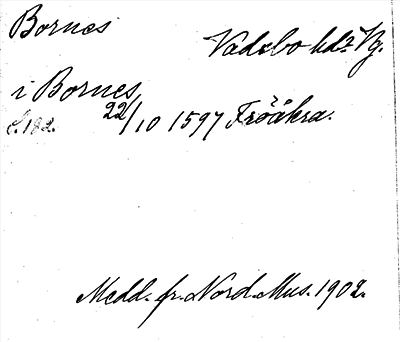 Bornes
Vadsbo hd. Vg.
i Bornes
s. 182.
22/10 1597 Fröåkra.
Medd. fr. Nord. Mus. 1902.